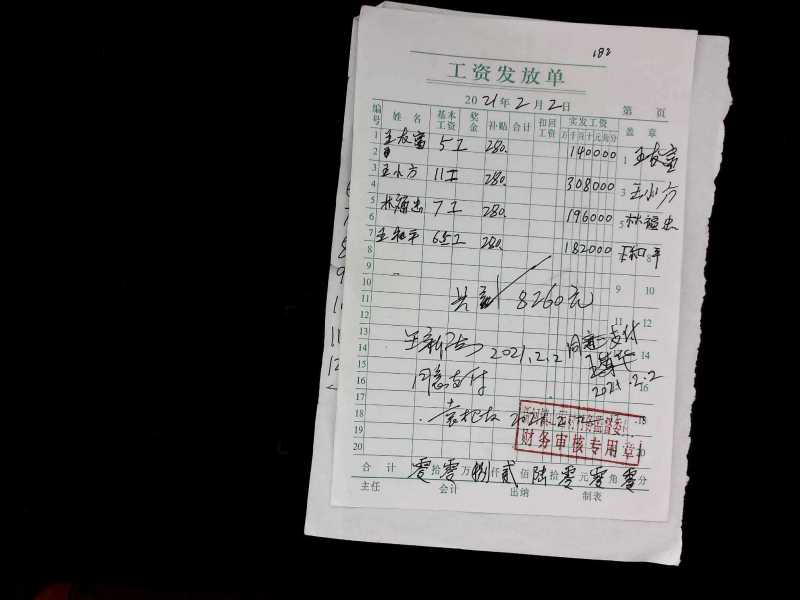 182
工资发放单
2021年2月2日 第 页
编号 姓名 基本工资 奖金 补贴 合计 扣回工资 实发工资 万千百十元角分 盖章
1 王友富 5工 280. 140000 1 王友富
2
3 王小方 11工 280. 308000 3 王小方
4
5 林福忠 7工 280. 196000 5 林福忠
6
7 王和平 6.5工 280. 182000 王和平
8 8
9 9 10
10
11 共 8260元 11 12
12
13 2021.2.2 同意支付
14 14
15 2021.2.2
16 同意支付 16
17
18 18
19 财务审核专用章
20 20
合计 零拾零万捌仟贰佰陆拾零元零角零分
主任 会计 出纳 制表